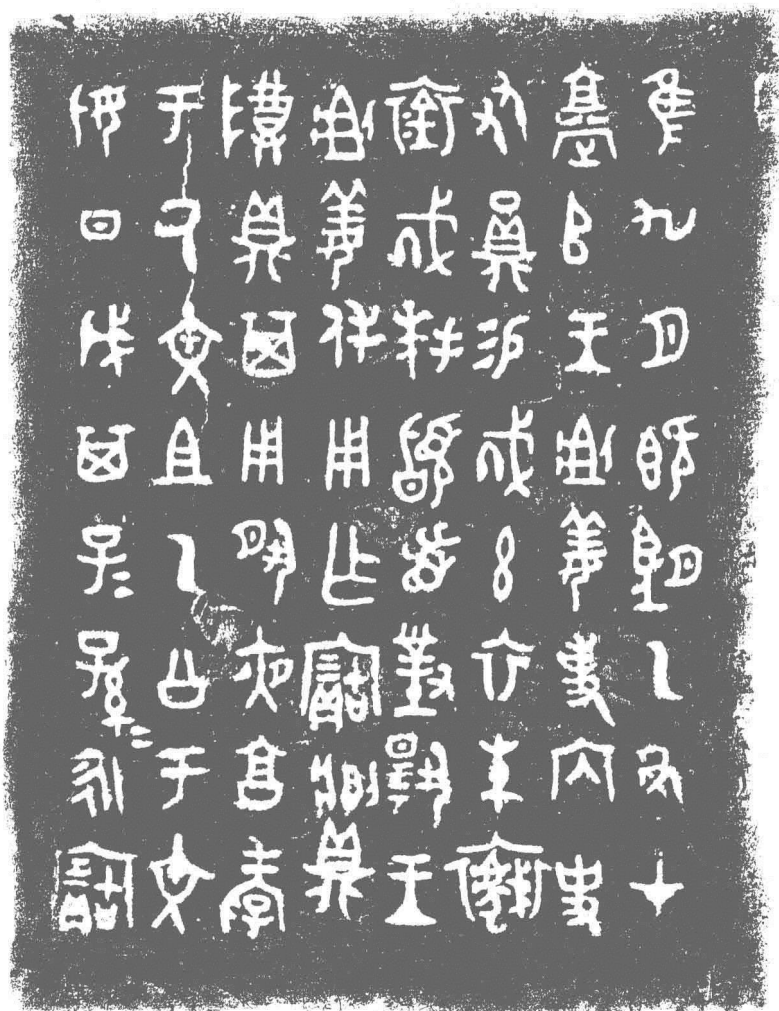 隹九月既望乙丑才
𩫏𠂤王俎姜事內史
友員易𢦚玄衣朱襮
裣𢦚拜𩒨首對揚王
俎姜休用乍寶䵼尊
鼎𢦚其用夙夜享孝
于氒文且乙公于文
妣日戊其子子孫孫永寶